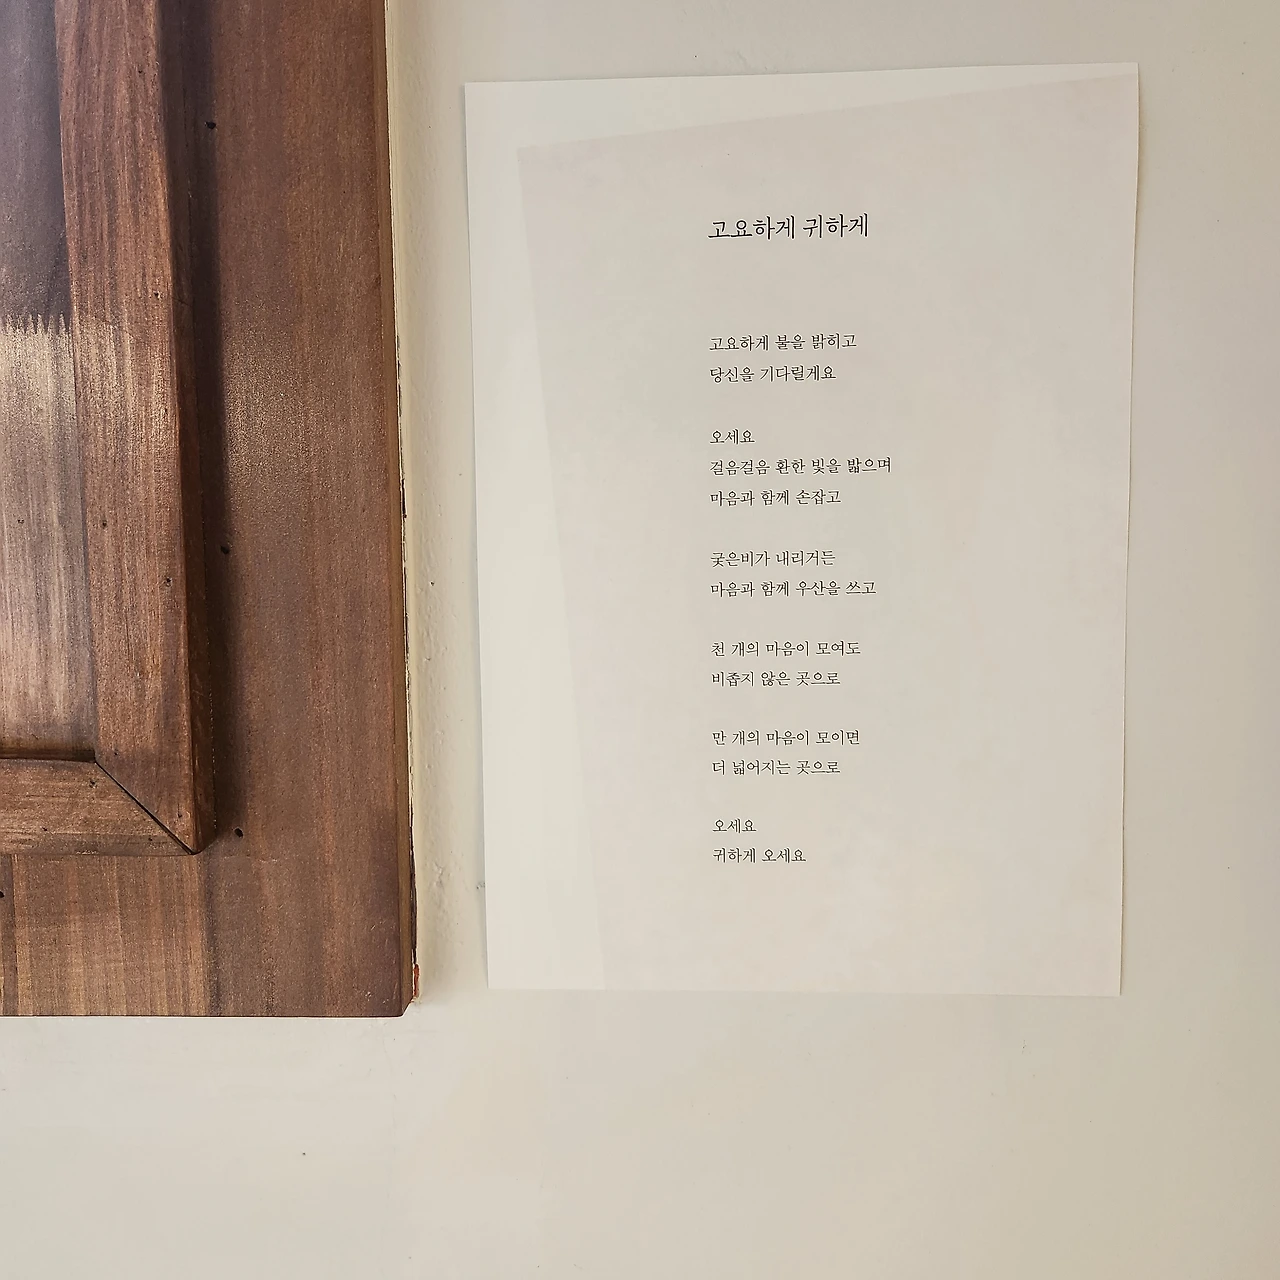 고요하게 귀하게
고요하게 불을 밝히고
당신을 기다릴게요
오세요
걸음걸음 환한 빛을 밟으며
마음과 함께 손잡고
궂은비가 내리거든
마음과 함께 우산을 쓰고
천 개의 마음이 모여도
비좁지 않은 곳으로
만 개의 마음이 모이면
더 넓어지는 곳으로
오세요
귀하게 오세요